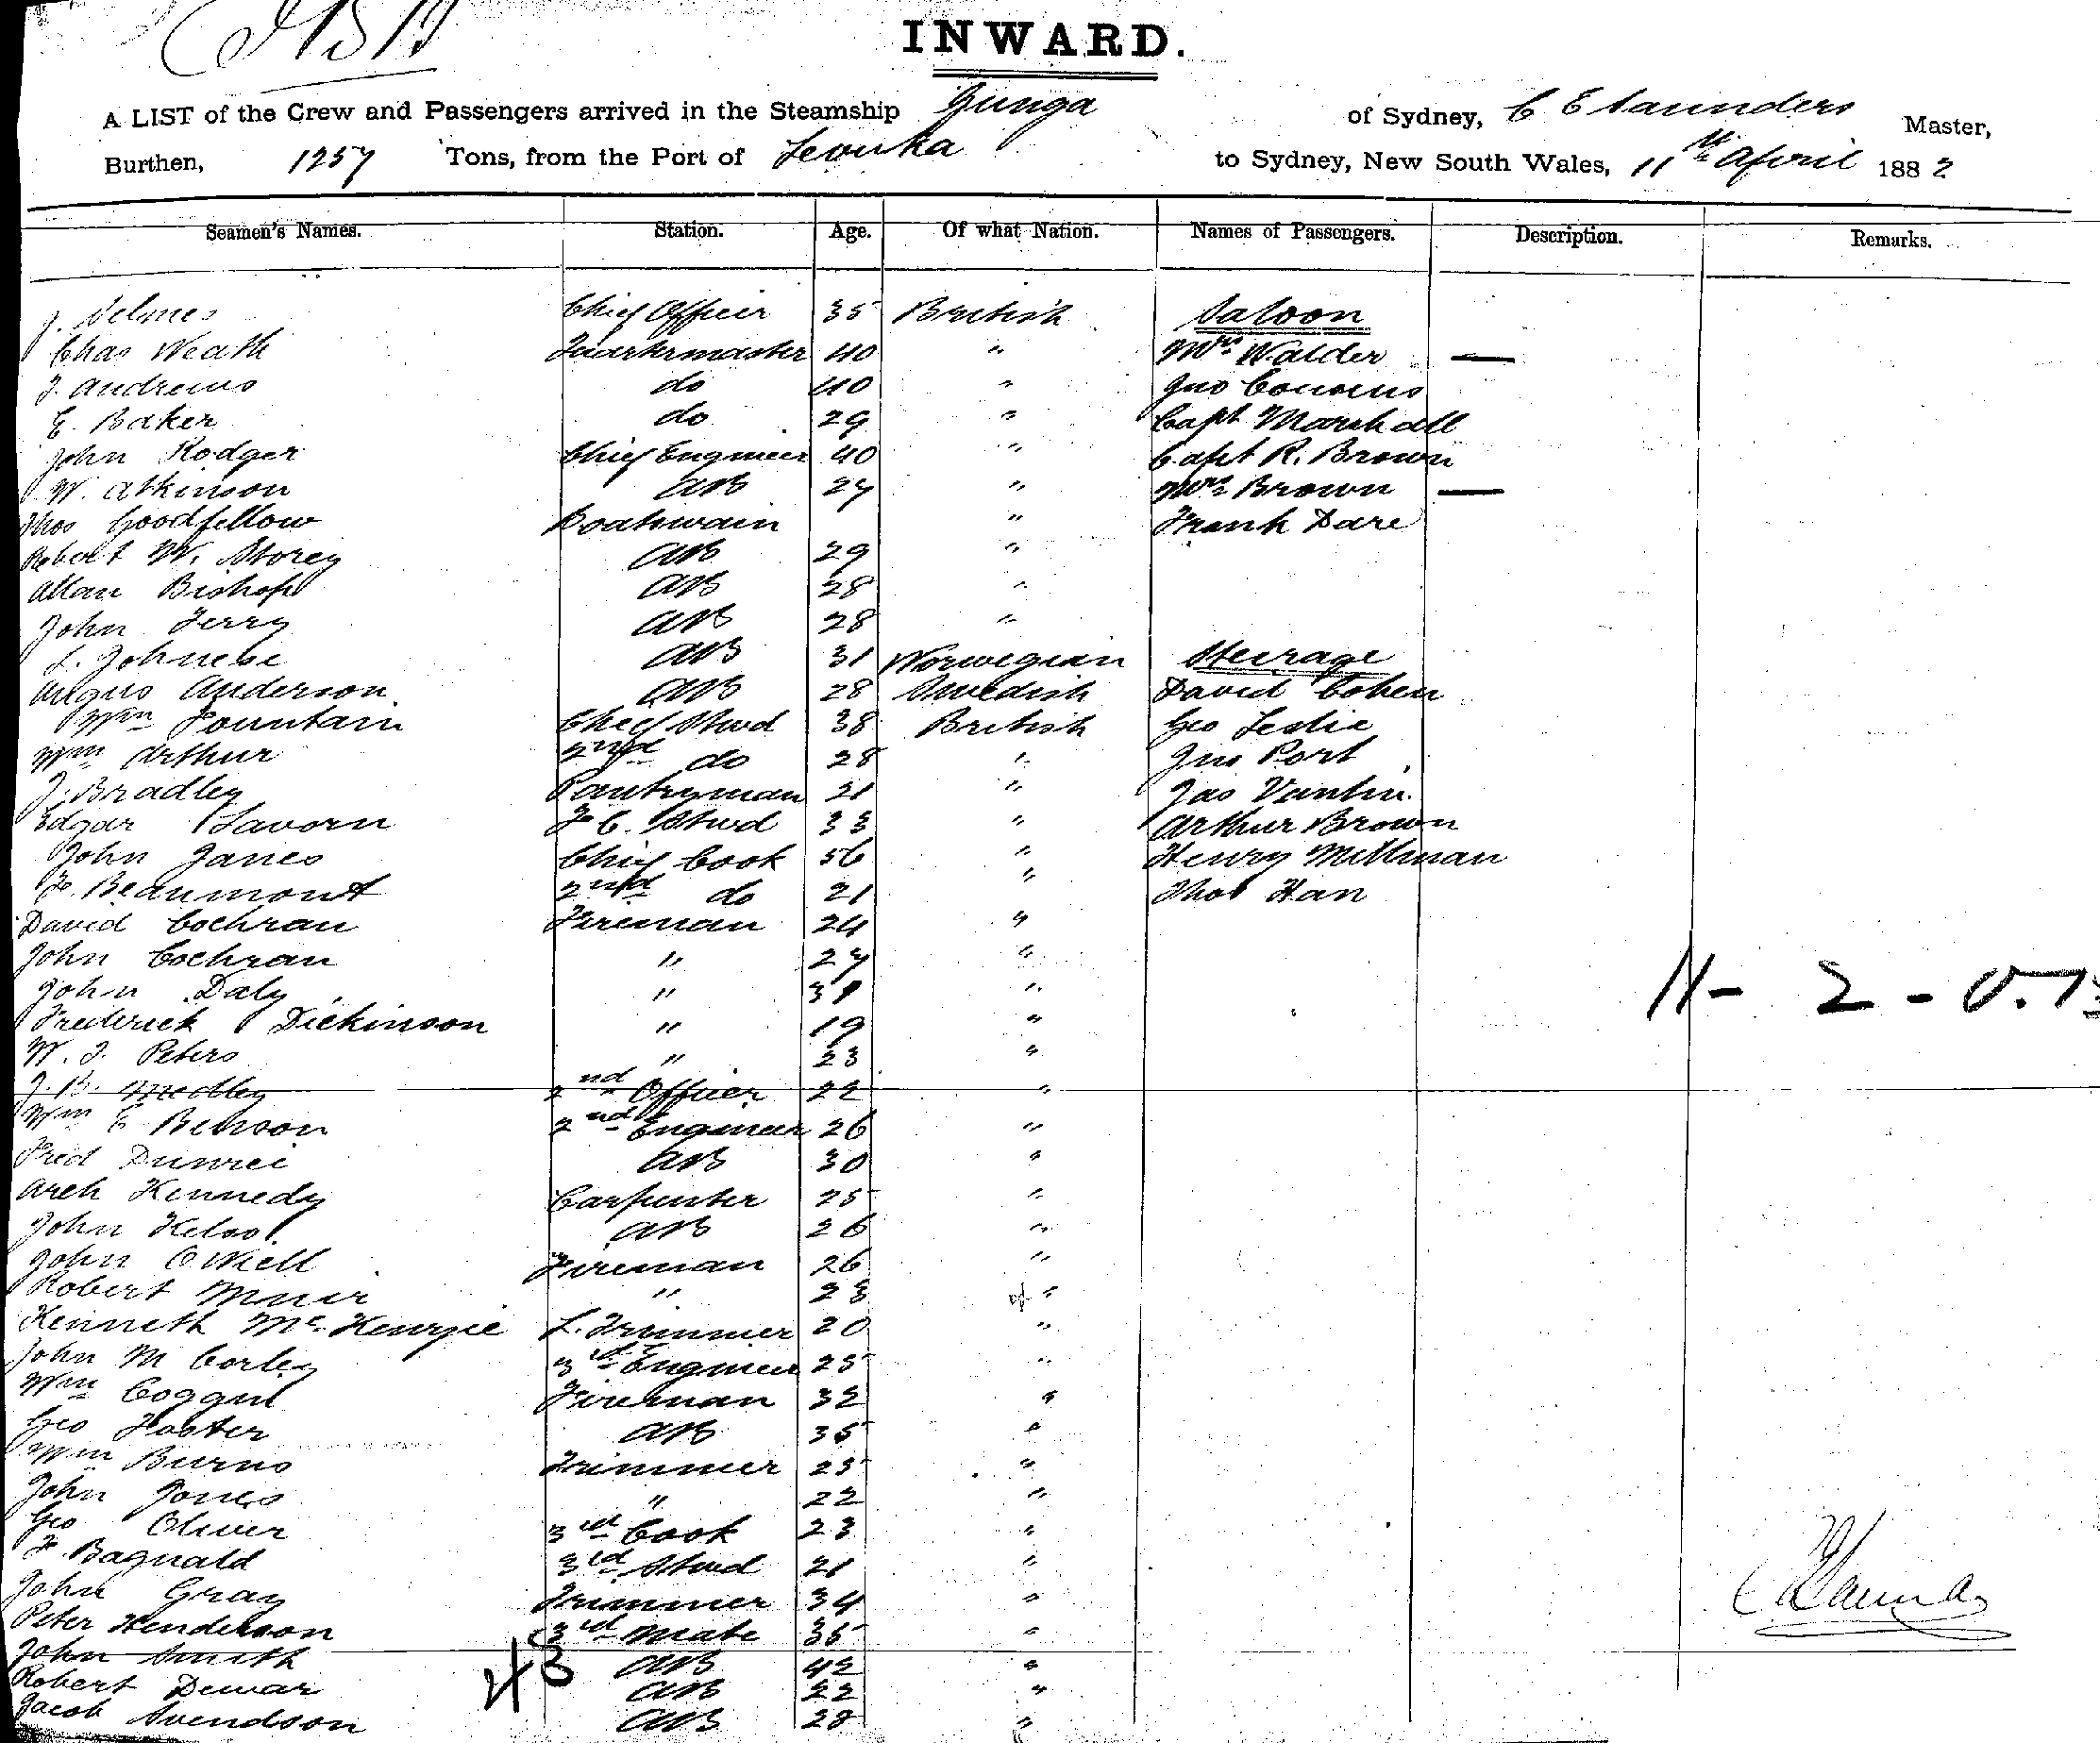 INWARD.
A LIST of the Crew and Passengers arrived in the Steamship Gunga of Sydney, C E Saunders Master,
Burthen, 1257 Tons, from the Port of Levuka to Sydney, New South Wales, 11th April 1882
Seamen's Names. Station. Age. Of what Nation. Names of Passengers. Description. Remarks.
J. Chief Officer 35 British Saloon
Chas Neath Quartermaster 40 " Mrs Walder —
J. Andrews do 40 " Jno Cousens
E. Baker do 29 " Capt Marshall
John Rodger Chief Engineer 40 " Capt R. Brown
W. Atkinson AB 27 " Mrs Brown —
Thos Goodfellow Boatswain " Frank Dare
Robert W. Storey AB 29 "
Allan Bishop AB 28 "
John Terry AB 28 "
L. AB 31 Norwegian Steerage
Angus Anderson AB 28 Swedish David Cohen
Wm Fountain Chief Stwd 38 British Geo Leslie
Wm Arthur 2nd do 28 " Jno Port
J. Bradley Pantryman 21 " Jas
Edgar Lavorn F C. Stwd 33 " Arthur Brown
John Janes Chief Cook 56 " Henry Millman
F. Beaumont 2nd do 21 " Thos Han
David Cochran Fireman 24 "
John Cochran " 27 "
John Daly " 31 "
Frederick Dickinson " 19 "
W. J. Peters " 23 "
J. B. Medley 2nd Officer 22 "
Wm E 2nd Engineer 26 "
Fred AB 30 "
Arch Kennedy Carpenter 25 "
John Kelso AB 26 "
John O'Neill Fireman 26 "
Robert Muir " 23 "
Kenneth McKenzie L. Trimmer 20 "
John M Corley 3rd Engineer 25 "
Wm Fireman 32 "
Geo Foster AB 35 "
Wm Burns Trimmer 25 "
John Jones " 22 "
Geo Oliver 3rd Cook 23 "
F. Bagnald 3rd Stwd 21 "
John Gray Trimmer 34 "
Peter Henderson 3rd Mate 35 "
John Smith AB 42 "
Robert Dewar AB 22 "
Jacob Svendson AB 28 "